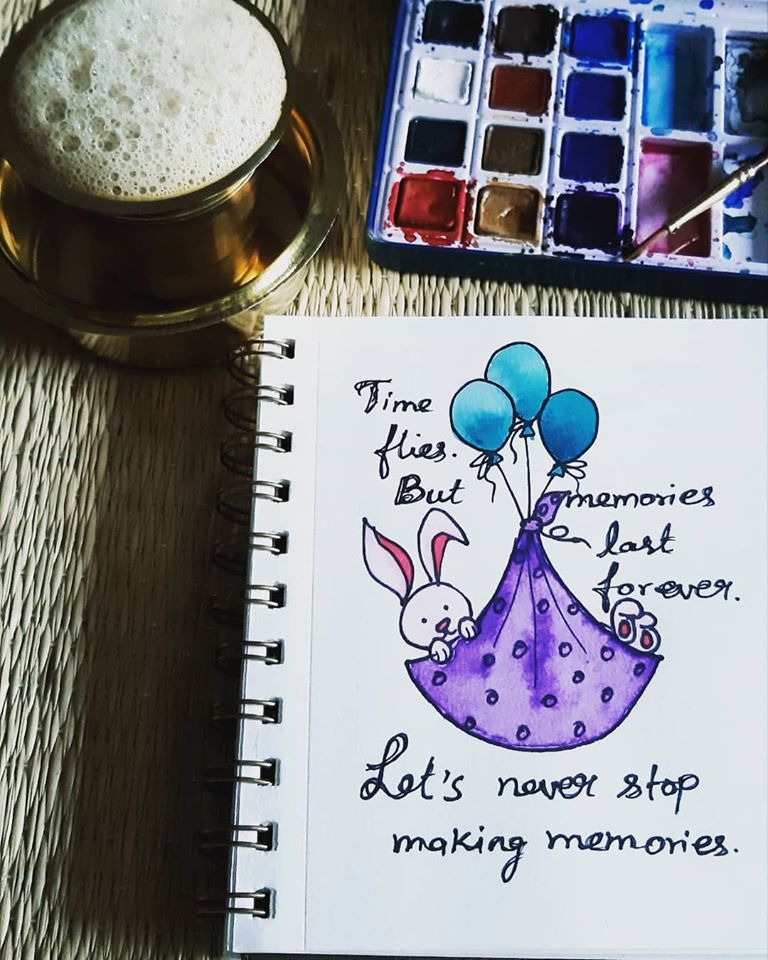 Time
flies.
But memories
last
forever.
Let's never stop
making memories.